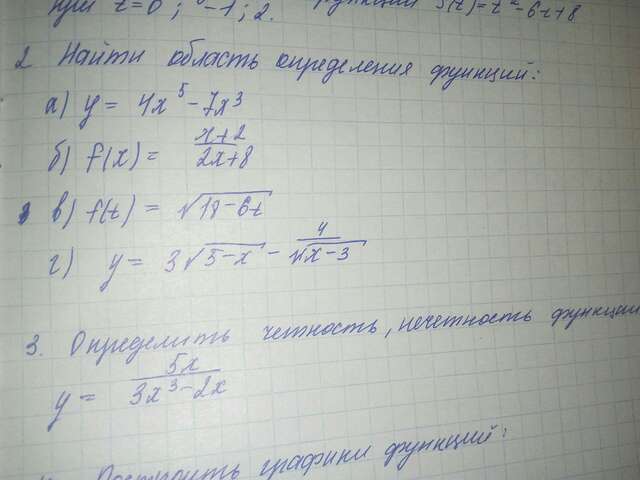 при t=0; -1; 2. функции f(t)=t²-6t+8
2 Найти область определения функций:
а) y = 4x⁵-7x³
б) f(x) = (x+2)/(2x+8)
в) f(t) = √(18-6t)
г) y = 3√(5-x) - 4/√(x-3)
3. Определить четность, нечетность функции
y = 5x/(3x³-2x)
Построить графики функций: